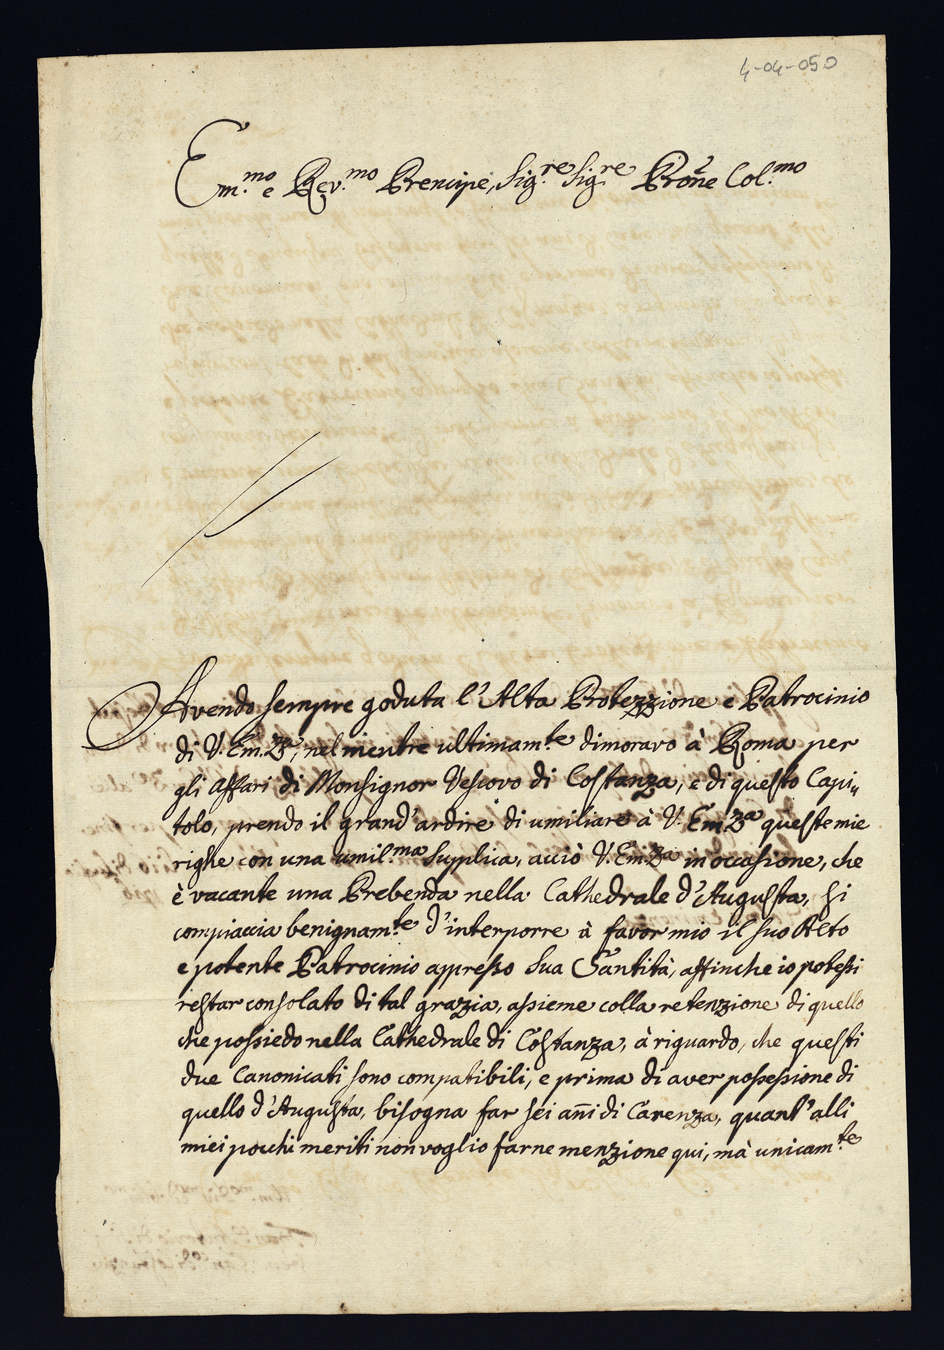 4-04-050
Em.mo e Rev.mo Prencipe, Sig.re Sig.re Prone Col.mo
Avendo sempre goduta l'Alta Protezzione e Patrocinio
di V. Em.Za, nel mentre ultimam.te dimoravo à Roma per
gli affari di Monsignor Vescovo di Costanza, e di questo Capi„
tolo, prendo il grand'ardire di umiliare à V. Em.Za queste mie
righe con una umil.ma supplica, acciò V. Em.Za in occasione, che
è vacante una Prebenda nella Cathedrale d'Augusta, si
compiaccia benignam.te d'interporre à favor mio il suo Alto
e potente Patrocinio appresso Sua Santità, affinche io potessi
restar consolato di tal grazia, assieme colla retenzione di quello
che possiedo nella Cathedrale di Costanza, à riguardo, che questi
due Canonicati sono compatibili, e prima di aver possessione di
quello d'Augusta, bisogna far sei añi di Carenza, quant'alli
miei pochi meriti non voglio farne menzione qui, mà unicam.te